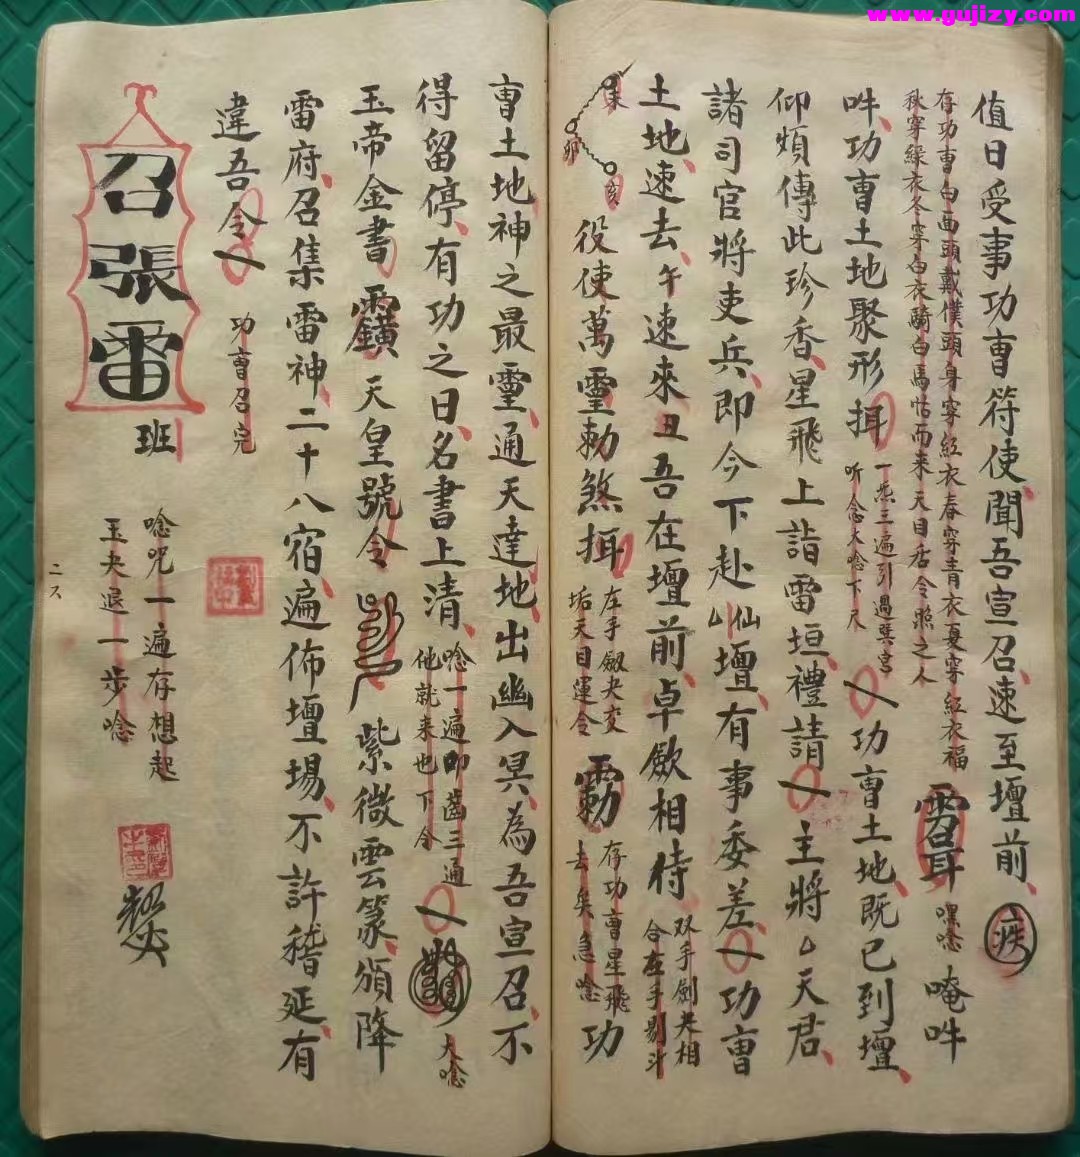 www.gujizy.com
值日受事功曹符使聞吾宣召速至壇前疾
存功曹白面頭戴僕頭身穿紅衣春穿青衣夏穿紅衣福
秋穿綠衣冬穿白衣騎白馬怗而来天目店令照之人
嘿念唵吽
吽功曹土地聚形揖
一炁三遍引過巽宮
听念大唸下尺
功曹土地既已到壇
仰煩傳此珍香星飛上詣雷垣禮請主將厶天君
諸司官將吏兵即今下赴厶仙壇有事委差功曹
土地速去午速來丑吾在壇前卓歃相待
双手劍夬相
合在手剔斗
未
卯
亥
役使萬靈勅煞揖
左手劔夬交
垢天目運令
存功曹星飛
去矣急唸
功
曹土地神之最靈通天達地出幽入冥為吾宣召不
得留停有功之日名書上清
唸一遍叩齒三通
他就来也下令
大唸
玉帝金書天皇號令紫微雲篆頒降
雷府召集雷神二十八宿遍佈壇場不許稽延有
違吾令
功曹召完
召張雷
班
唸咒一遍存想起
玉夬退一步唸